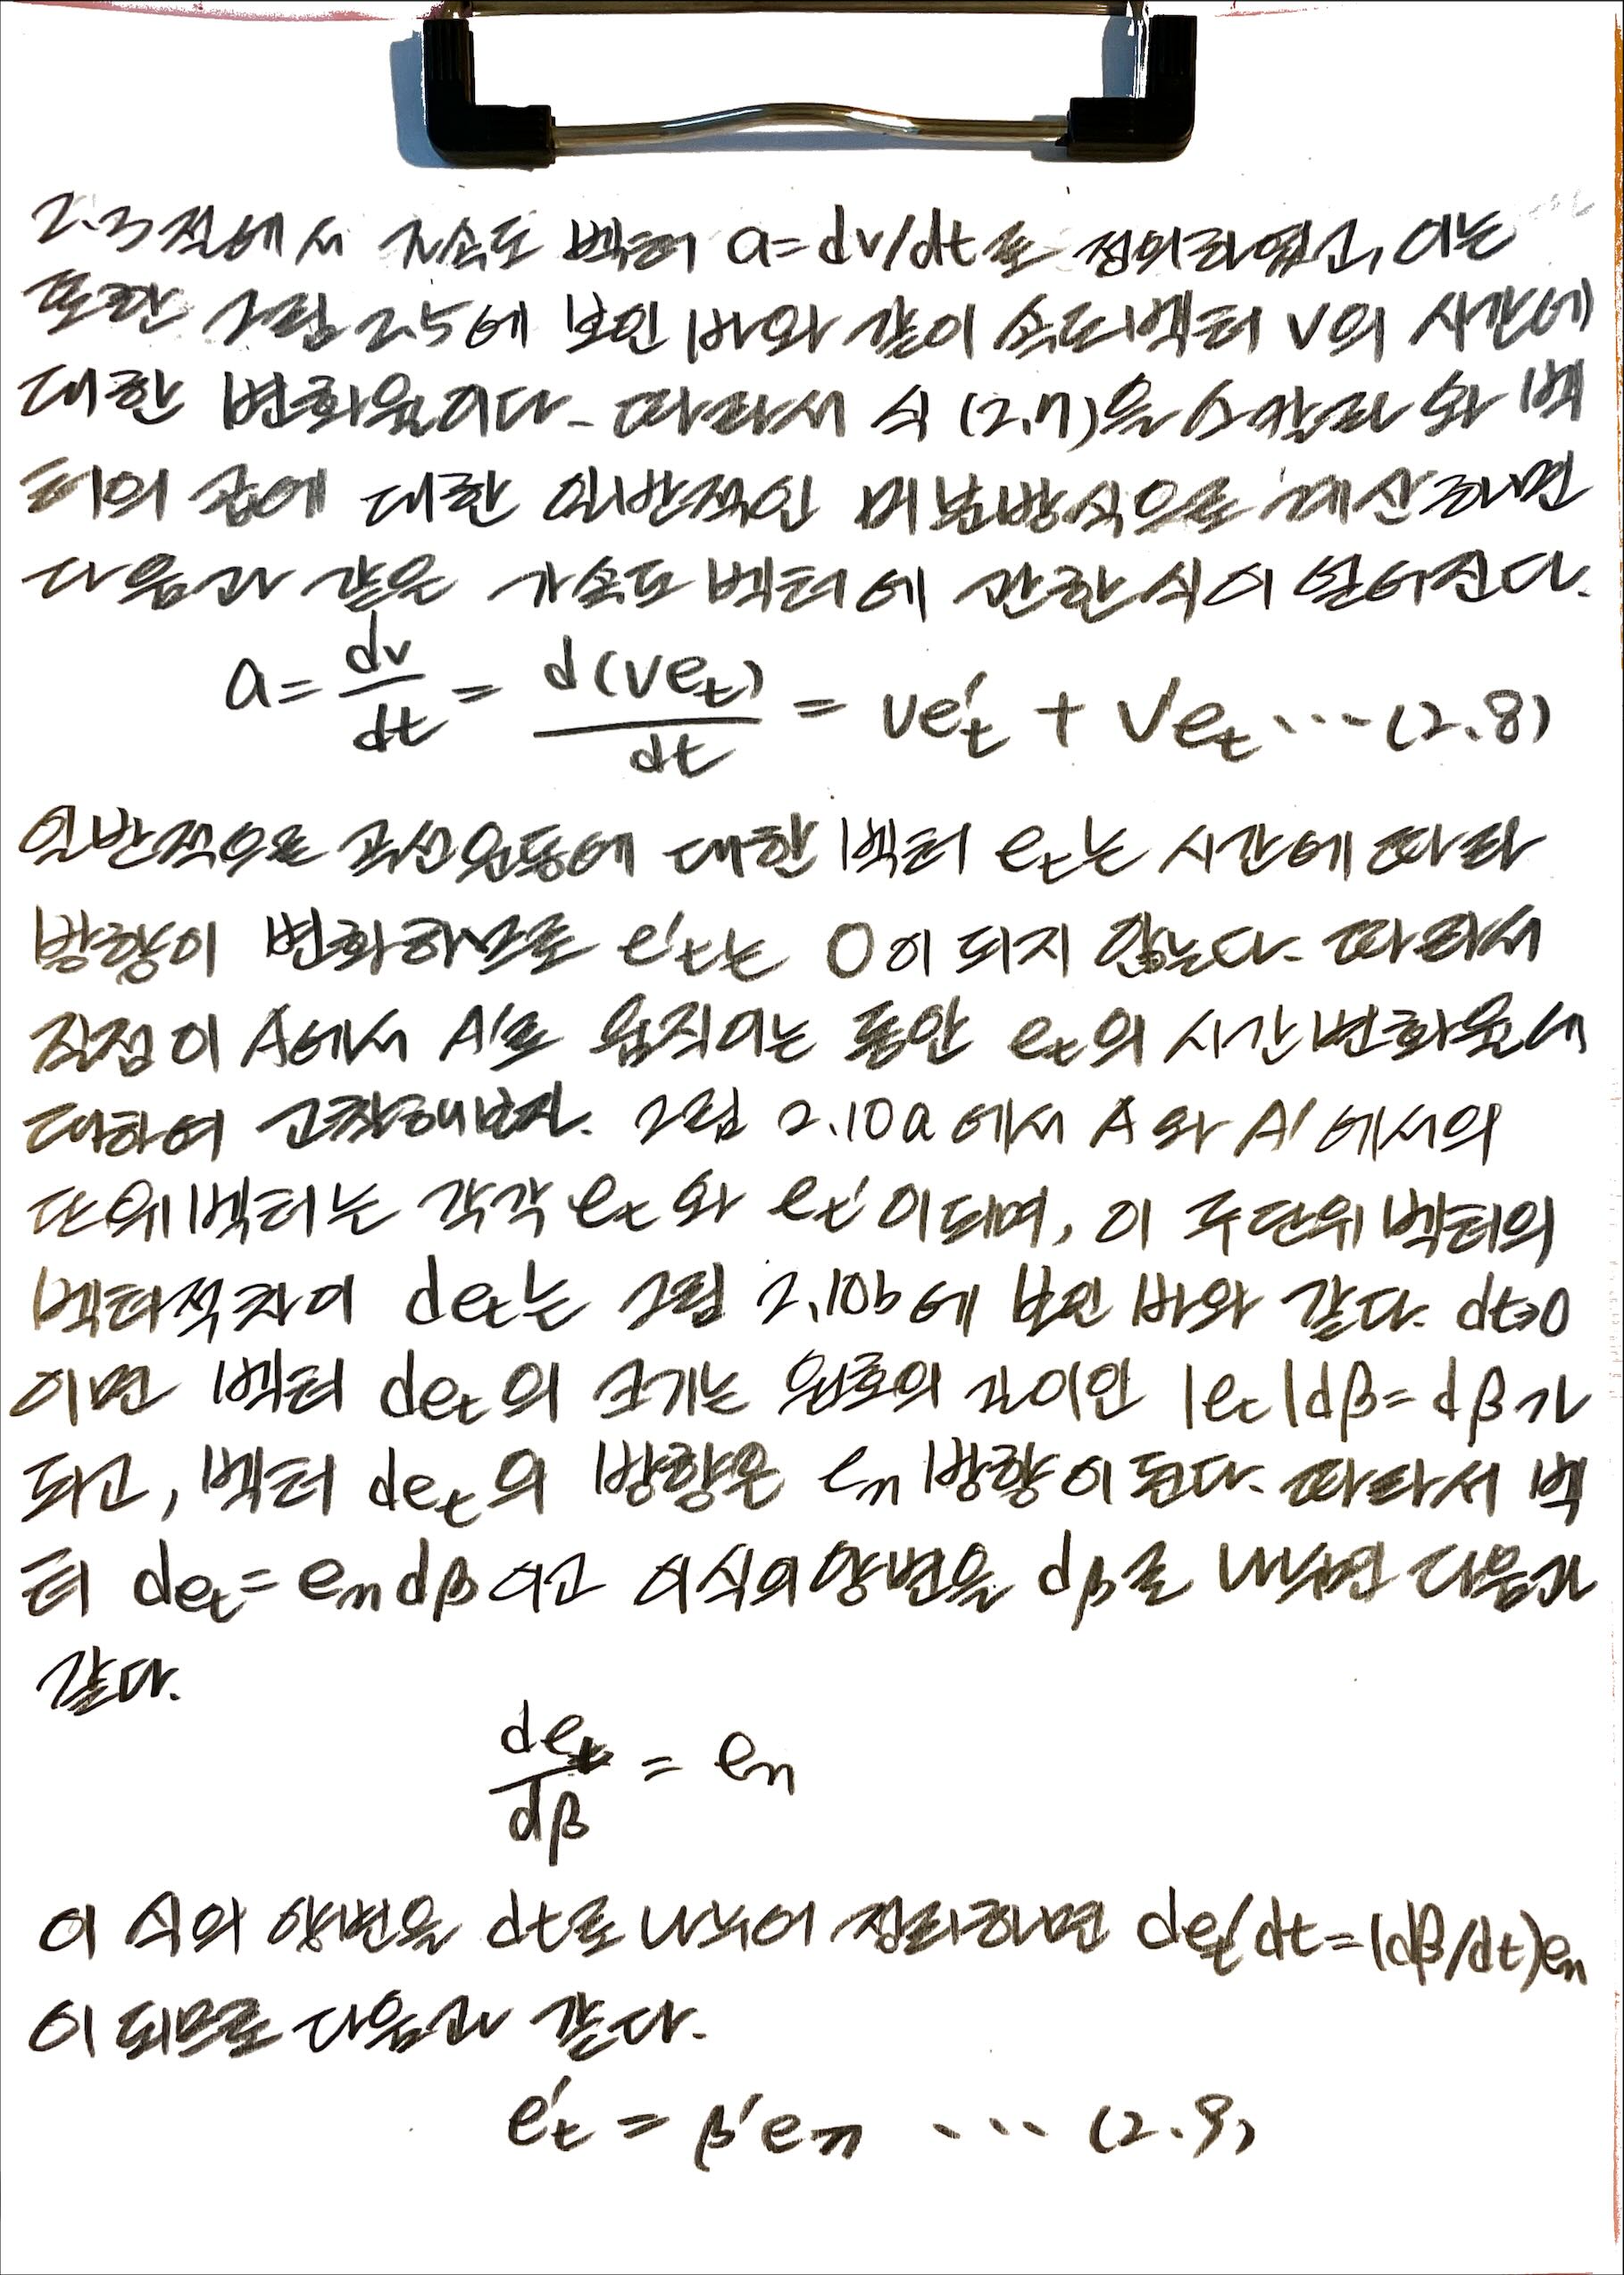 2.3절에서 가속도 벡터 a=dv/dt로 정의하였고, 이는
또한 그림 2.5에 보인 바와 같이 속도벡터 v의 시간에
대한 변화율이다. 따라서 식 (2.7)을 스칼라와 벡
터의 곱에 대한 일반적인 미분방식으로 계산하면
다음과 같은 가속도 벡터에 관한 식이 얻어진다.
a = dv/dt = d(ve_t)/dt = ve'_t + v'e_t ... (2.8)
일반적으로 곡선운동에 대한 벡터 e_t는 시간에 따라
방향이 변화하므로 e'_t는 0이 되지 않는다. 따라서
질점이 A에서 A'로 움직이는 동안 e_t의 시간변화율에
대하여 고찰해보자. 그림 2.10a에서 A와 A'에서의
단위벡터는 각각 e_t와 e_t'이되며, 이 두단위벡터의
벡터적차이 de_t는 그림 2.10b에 보인 바와 같다. dt→0
이면 벡터 de_t의 크기는 원호의 길이인 |e_t|dβ=dβ가
되고, 벡터 de_t의 방향은 e_n방향이 된다. 따라서 벡
터 de_t=e_n dβ이고 이식의 양변을 dβ로 나누면 다음과
같다.
de_t/dβ = e_n
이 식의 양변을 dt로 나누어 정리하면 de_t/dt=(dβ/dt)e_n
이 되므로 다음과 같다.
e'_t = β'e_n ... (2.9)